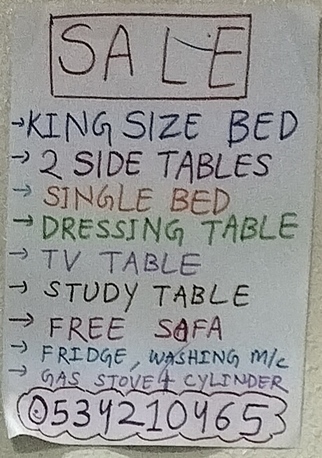 SALE
→KING SIZE BED
→ 2 SIDE TABLES
→ SINGLE BED
→ DRESSING TABLE
→ TV TABLE
→ STUDY TABLE
→ FREE SOFA
→ FRIDGE, WASHING M/C
→ GAS STOVE + CYLINDER
0534210465